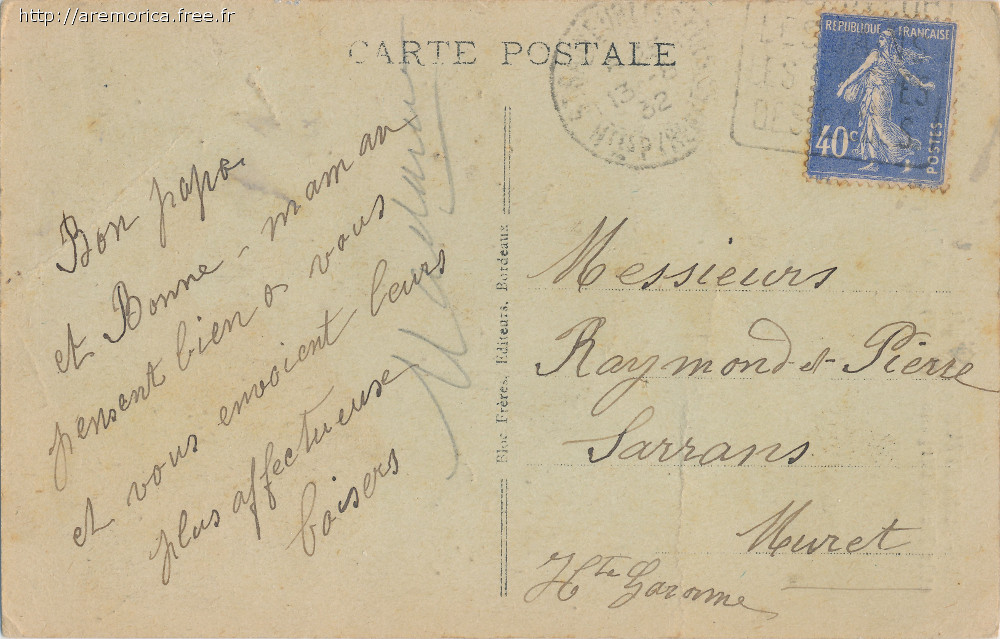 http://aremorica.free.fr
CARTE POSTALE
RÉPUBLIQUE FRANÇAISE
40c
POSTES
32
Bon papa
et Bonne-maman
pensent bien a vous
et vous envoient leurs
plus affectueuse
baisers
Bloc Frères, Editeurs, Bordeaux
Messieurs
Raymond et Pierre
Sarrans
Muret
Hte Garonne